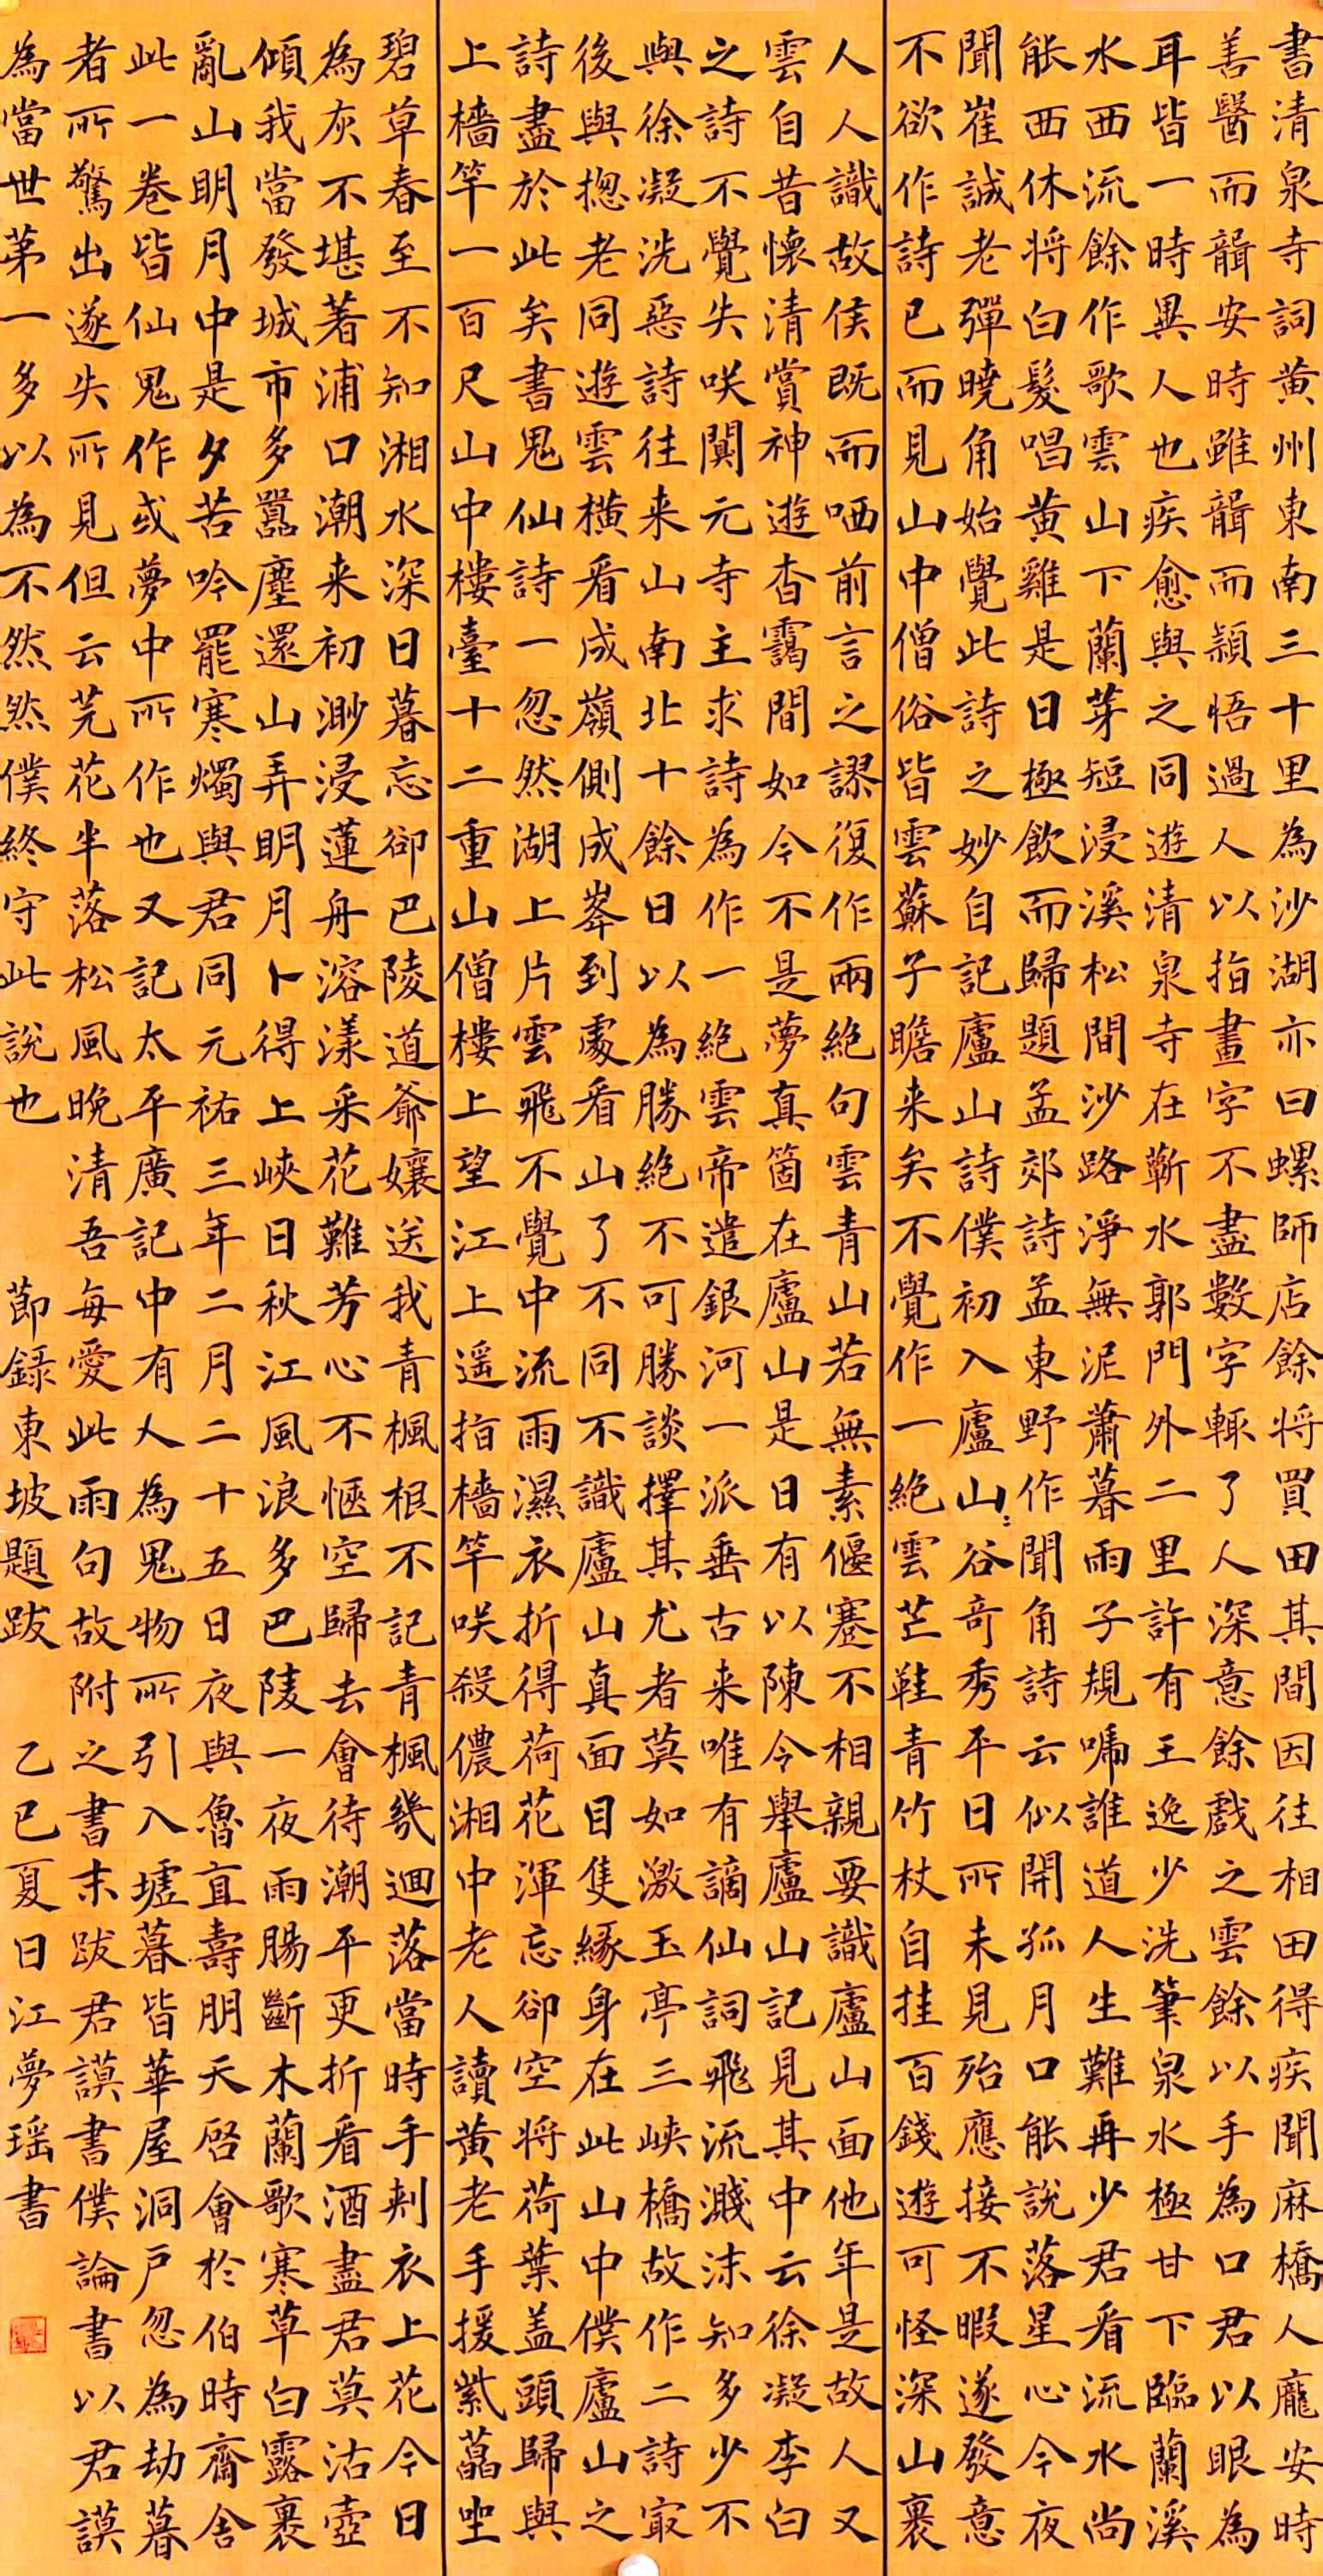 書清泉寺詞黄州東南三十里為沙湖亦曰螺師店餘将買田其間因往相田得疾聞麻橋人龐安時
善醫而聾安時雖聾而穎悟過人以指畫字不盡數字輒了人深意餘戲之雲餘以手為口君以眼為
耳皆一時異人也疾愈與之同遊清泉寺在蘄水郭門外二里許有王逸少洗筆泉水極甘下臨蘭溪
水西流餘作歌雲山下蘭芽短浸溪松間沙路淨無泥蕭暮雨子規啼誰道人生難再少君看流水尚
能西休将白髮唱黄雞是日極飲而歸題孟郊詩孟東野作聞角詩云似開孤月口能說落星心今夜
聞崔誠老彈曉角始覺此詩之妙自記廬山詩僕初入廬山谷奇秀平日所未見殆應接不暇遂發意
不欲作詩已而見山中僧俗皆雲蘇子瞻来矣不覺作一絶雲芒鞋青竹杖自挂百錢遊可怪深山裏
人人識故侯既而哂前言之謬復作兩絶句雲青山若無素偃蹇不相親要識廬山面他年是故人又
雲自昔懷清賞神遊杳靄間如今不是夢真箇在廬山是日有以陳令舉廬山記見其中云徐凝李白
之詩不覺失咲開元寺主求詩為作一絶雲帝遣銀河一派垂古来唯有謫仙詞飛流濺沫知多少不
與徐凝洗惡詩往来山南北十餘日以為勝絶不可勝談擇其尤者莫如漱玉亭三峽橋故作二詩冣
後與揔老同遊雲横看成嶺側成峯到處看山了不同不識廬山真面目隻緣身在此山中僕廬山之
詩盡於此矣書鬼仙詩一忽然湖上片雲飛不覺中流雨濕衣折得荷花渾忘卻空将荷葉盖頭歸與
上檣竿一百尺山中樓臺十二重山僧樓上望江上遥指檣竿咲殺儂湘中老人讀黄老手援紫藟坐
碧草春至不知湘水深日暮忘卻巴陵道爺孃送我青楓根不記青楓幾迴落當時手刺衣上花今日
為灰不堪著浦口潮来初渺浸蓮舟溶漾采花難芳心不愜空歸去會待潮平更折看酒盡君莫沽壺
傾我當發城市多囂塵還山弄明月卜得上峽日秋江風浪多巴陵一夜雨腸斷木蘭歌寒草白露裏
亂山明月中是夕苦吟罷寒燭與君同元祐三年二月二十五日夜與魯直壽朋天啓會於伯時齋舍
此一卷皆仙鬼作或夢中所作也又記太平廣記中有人為鬼物所引入墟暮皆華屋洞户忽為劫暮
者所驚出遂失所見但云芫花半落松風晚清吾每愛此兩句故附之書末跋君謨書僕論書以君謨
為當世第一多以為不然然僕終守此說也 節録東坡題跋 乙巳夏日江夢瑶書